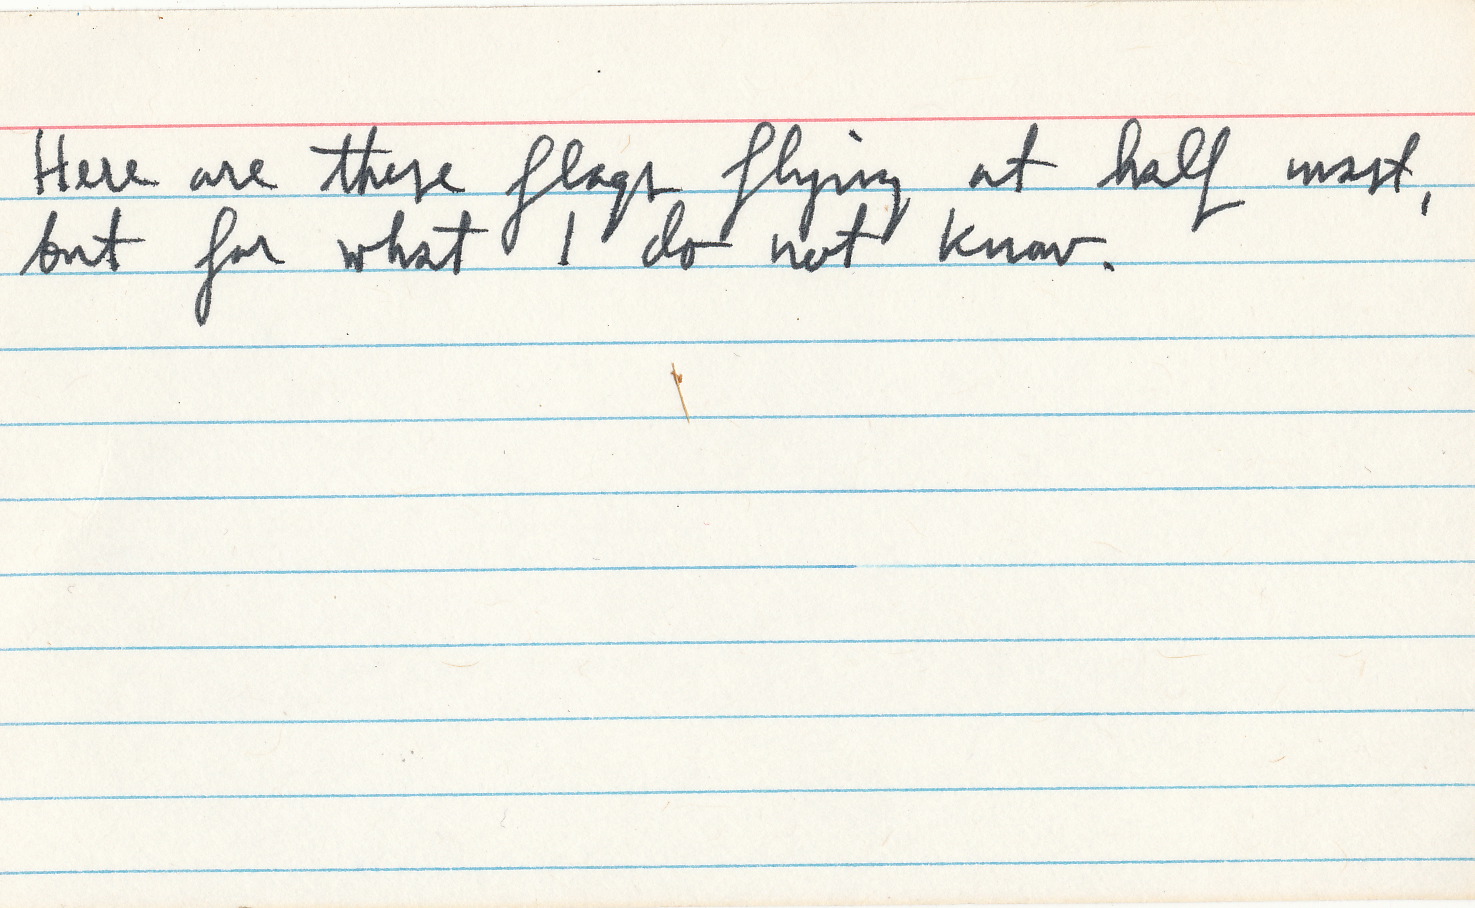 Here are these flags flying at half mast,
but for what I do not know.